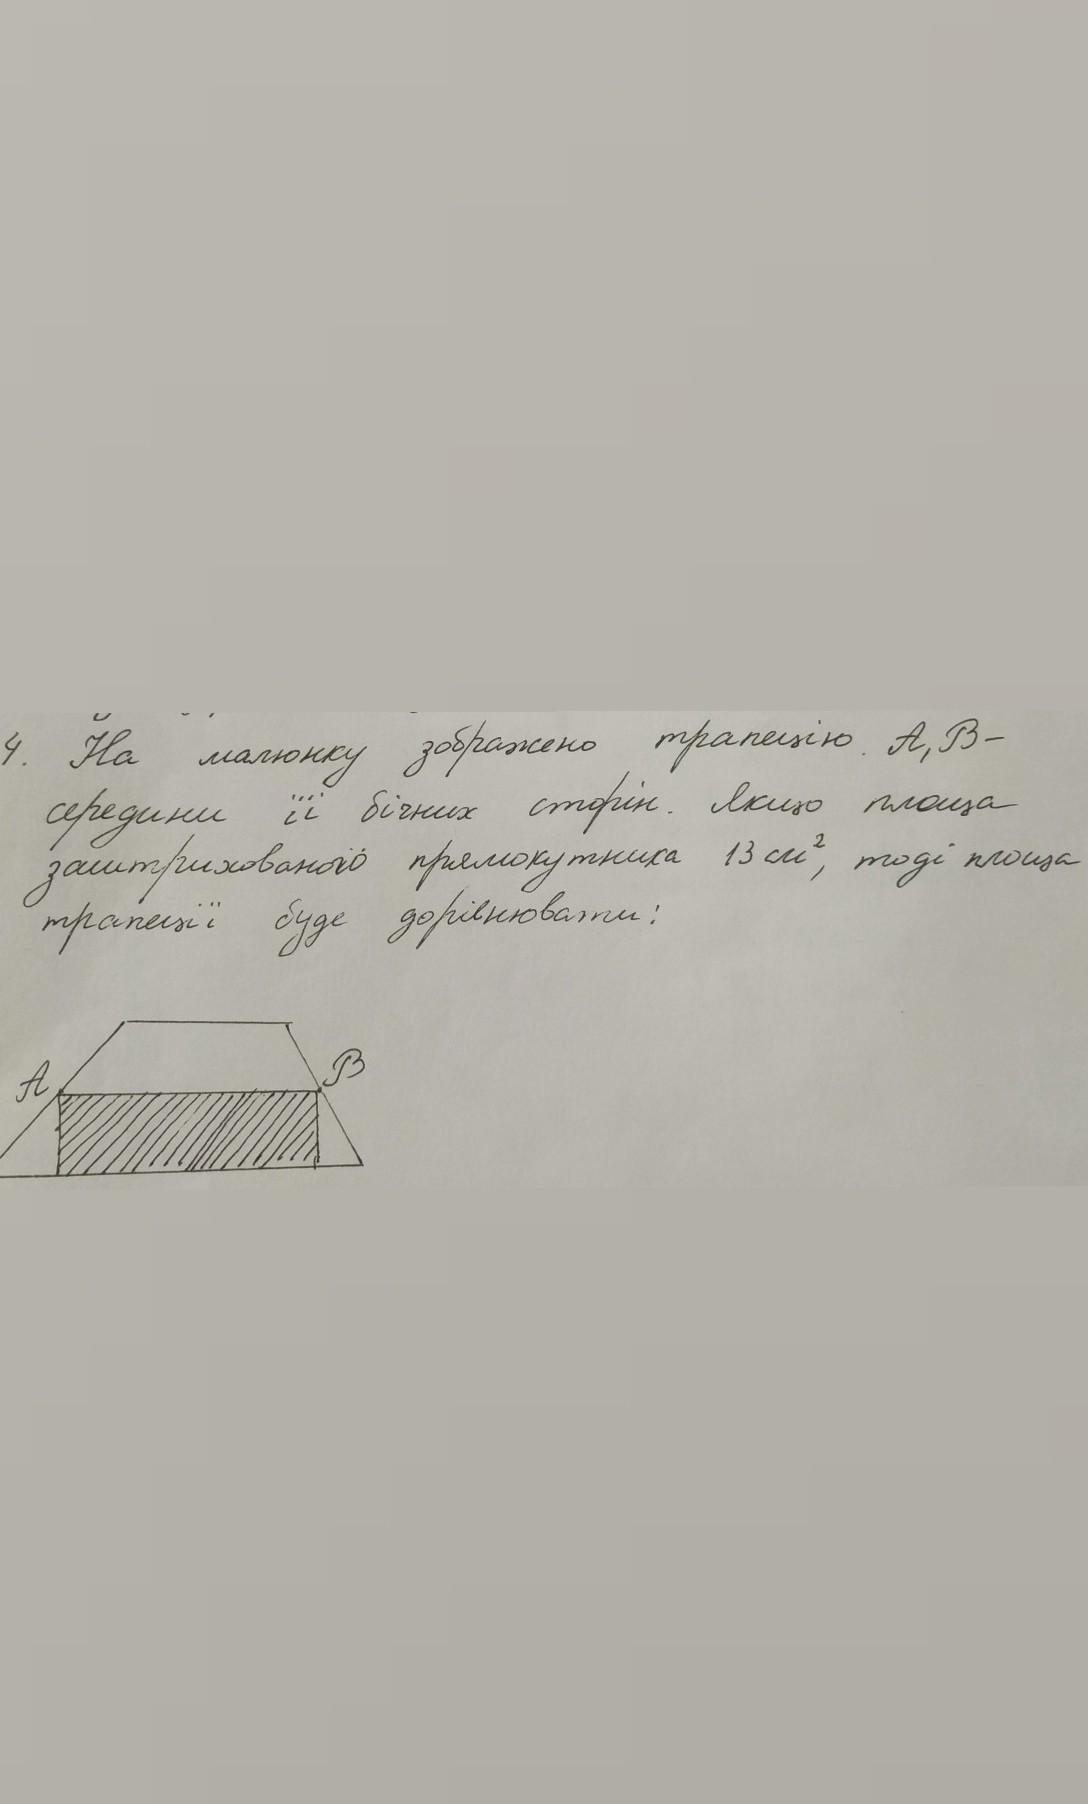 4. На малюнку зображено трапецію. А, В -
середини її бічних сторін. Якщо площа
заштрихованого прямокутника 13 см², тоді площа
трапеції буде дорівнювати:
А
В